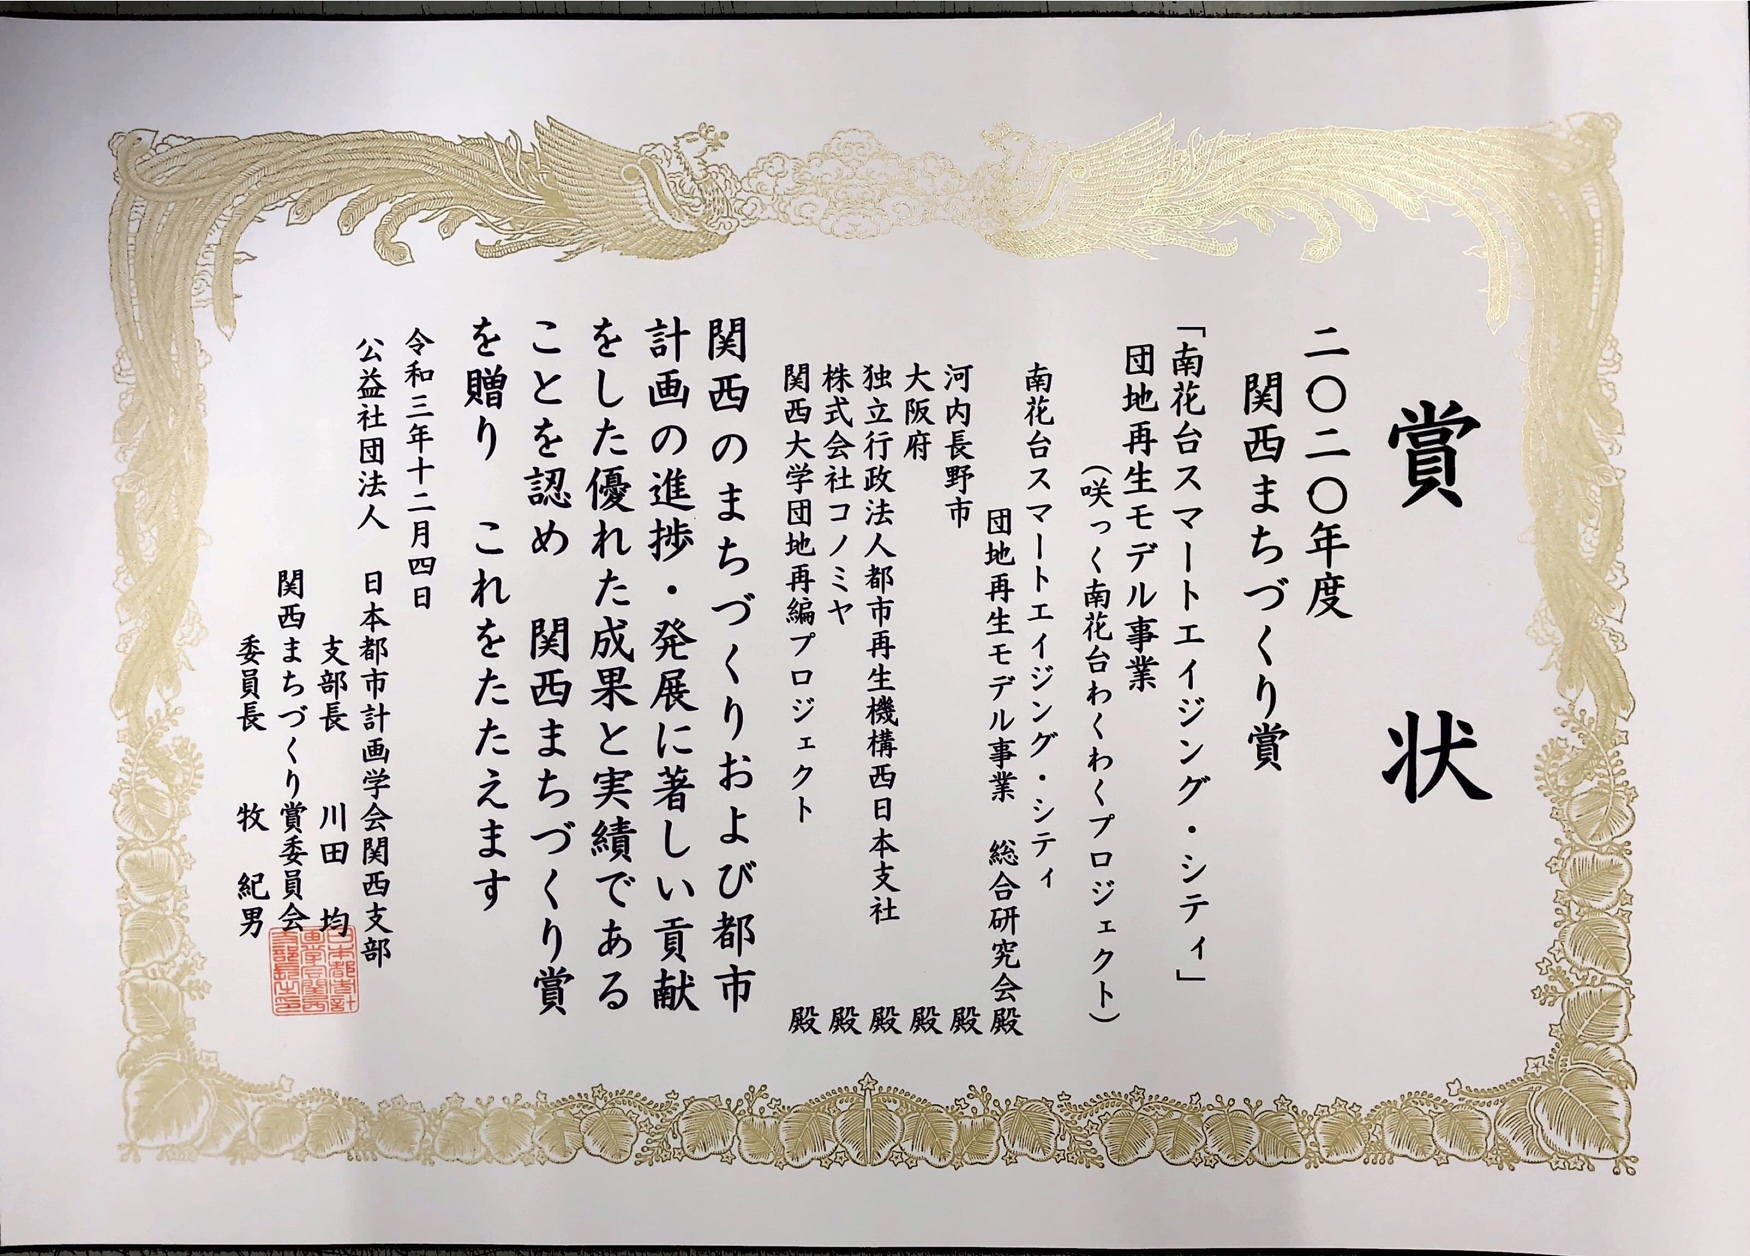 賞状
二〇二〇年度
関西まちづくり賞
「南花台スマートエイジング・シティ」
団地再生モデル事業
（咲っく南花台わくわくプロジェクト）
南花台スマートエイジング・シティ
団地再生モデル事業　総合研究会殿
河内長野市　殿
大阪府　殿
独立行政法人都市再生機構西日本支社　殿
株式会社コノミヤ　殿
関西大学団地再編プロジェクト　殿
関西のまちづくりおよび都市
計画の進捗・発展に著しい貢献
をした優れた成果と実績である
ことを認め　関西まちづくり賞
を贈り　これをたたえます
令和三年十二月四日
公益社団法人　日本都市計画学会関西支部
支部長　川田　均
関西まちづくり賞委員会
委員長　牧　紀男